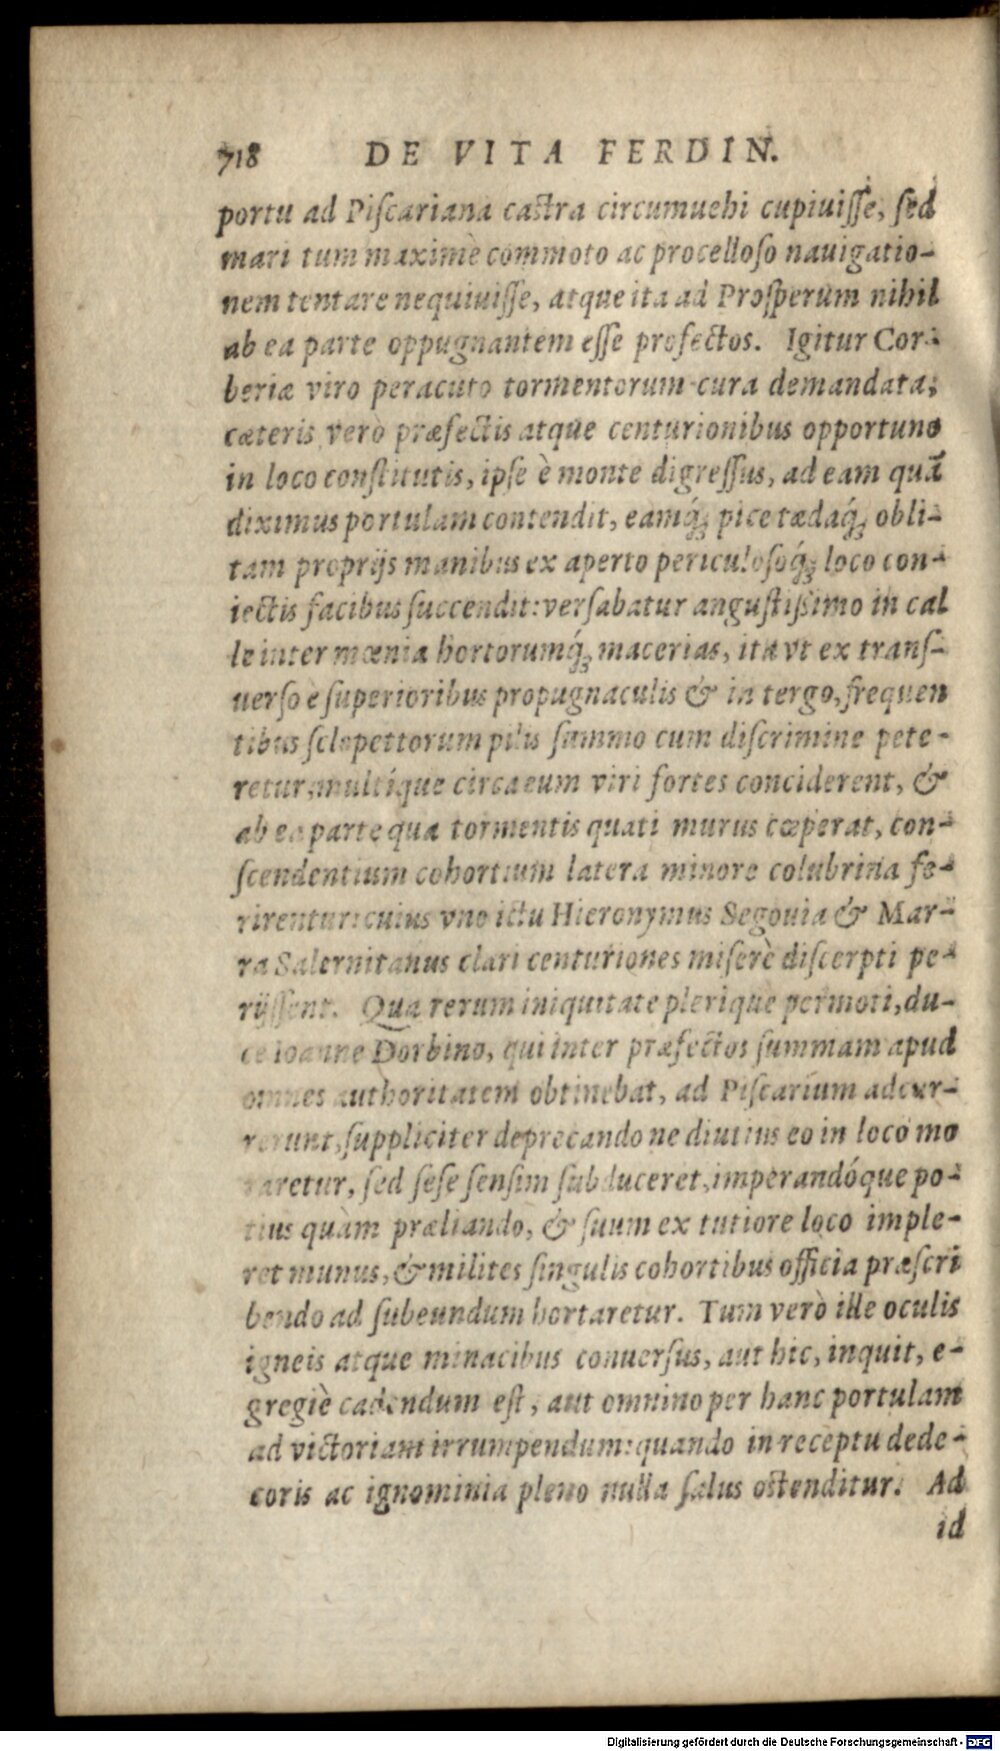 718 DE VITA FERDIN.
portu ad Piſcariana caſtra circumuehi cupiuiſſe, ſed
mari tum maximè commoto ac procelloſo nauigatio-
nem tentare nequiuiſſe, atque ita ad Proſperum nihil
ab ea parte oppugnantem eſſe profectos. Igitur Cor-
beriæ viro peracuto tormentorum cura demandata,
cæteris verò præfectis atque centurionibus opportuno
in loco conſtitutis, ipſe è monte digreſſus, ad eam quā
diximus portulam contendit, eamq́ꝫ pice tædaq́ꝫ obli-
tam proprijs manibus ex aperto periculoſoq́ꝫ loco con-
iectis facibus ſuccendit: verſabatur anguſtiſsimo in cal
le inter mœnia hortorumq́ꝫ macerias, ita vt ex tranſ-
uerſo è ſuperioribus propugnaculis & in tergo, frequen
tibus ſclopettorum pilis ſummo cum diſcrimine pete-
retur, multíque circa eum viri fortes conciderent, &
ab ea parte qua tormentis quati murus cœperat, con-
ſcendentium cohortium latera minore colubrina fe-
rirentur: cuius vno ictu Hieronymus Segouia & Mar-
ra Salernitanus clari centuriones miſerè diſcerpti pe-
rijſſent. Qua rerum iniquitate plerique permoti, du-
ce Ioanne Dorbino, qui inter præfectos ſummam apud
omnes authoritatem obtinebat, ad Piſcarium adcur-
rerunt, ſuppliciter deprecando ne diutius eo in loco mo
raretur, ſed ſeſe ſenſim ſubduceret, imperandóque po-
tius quàm præliando, & ſuum ex tutiore loco imple-
ret munus, & milites ſingulis cohortibus officia præſcri
bendo ad ſubeundum hortaretur. Tum verò ille oculis
igneis atque minacibus conuerſus, aut hic, inquit, e-
gregiè cadendum eſt, aut omnino per hanc portulam
ad victoriam irrumpendum: quando in receptu dede-
coris ac ignominia pleno nulla ſalus oſtenditur. Ad
id
Digitalisierung gefördert durch die Deutsche Forschungsgemeinschaft - DFG